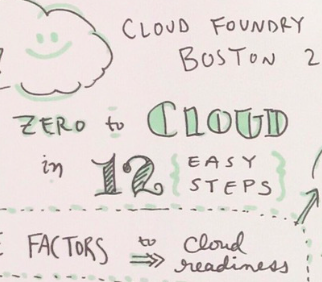 CLOUD FOUNDRY
BOSTON 2
ZERO to CLOUD
in 12 { EASY STEPS }
FACTORS to ⇒ Cloud readiness